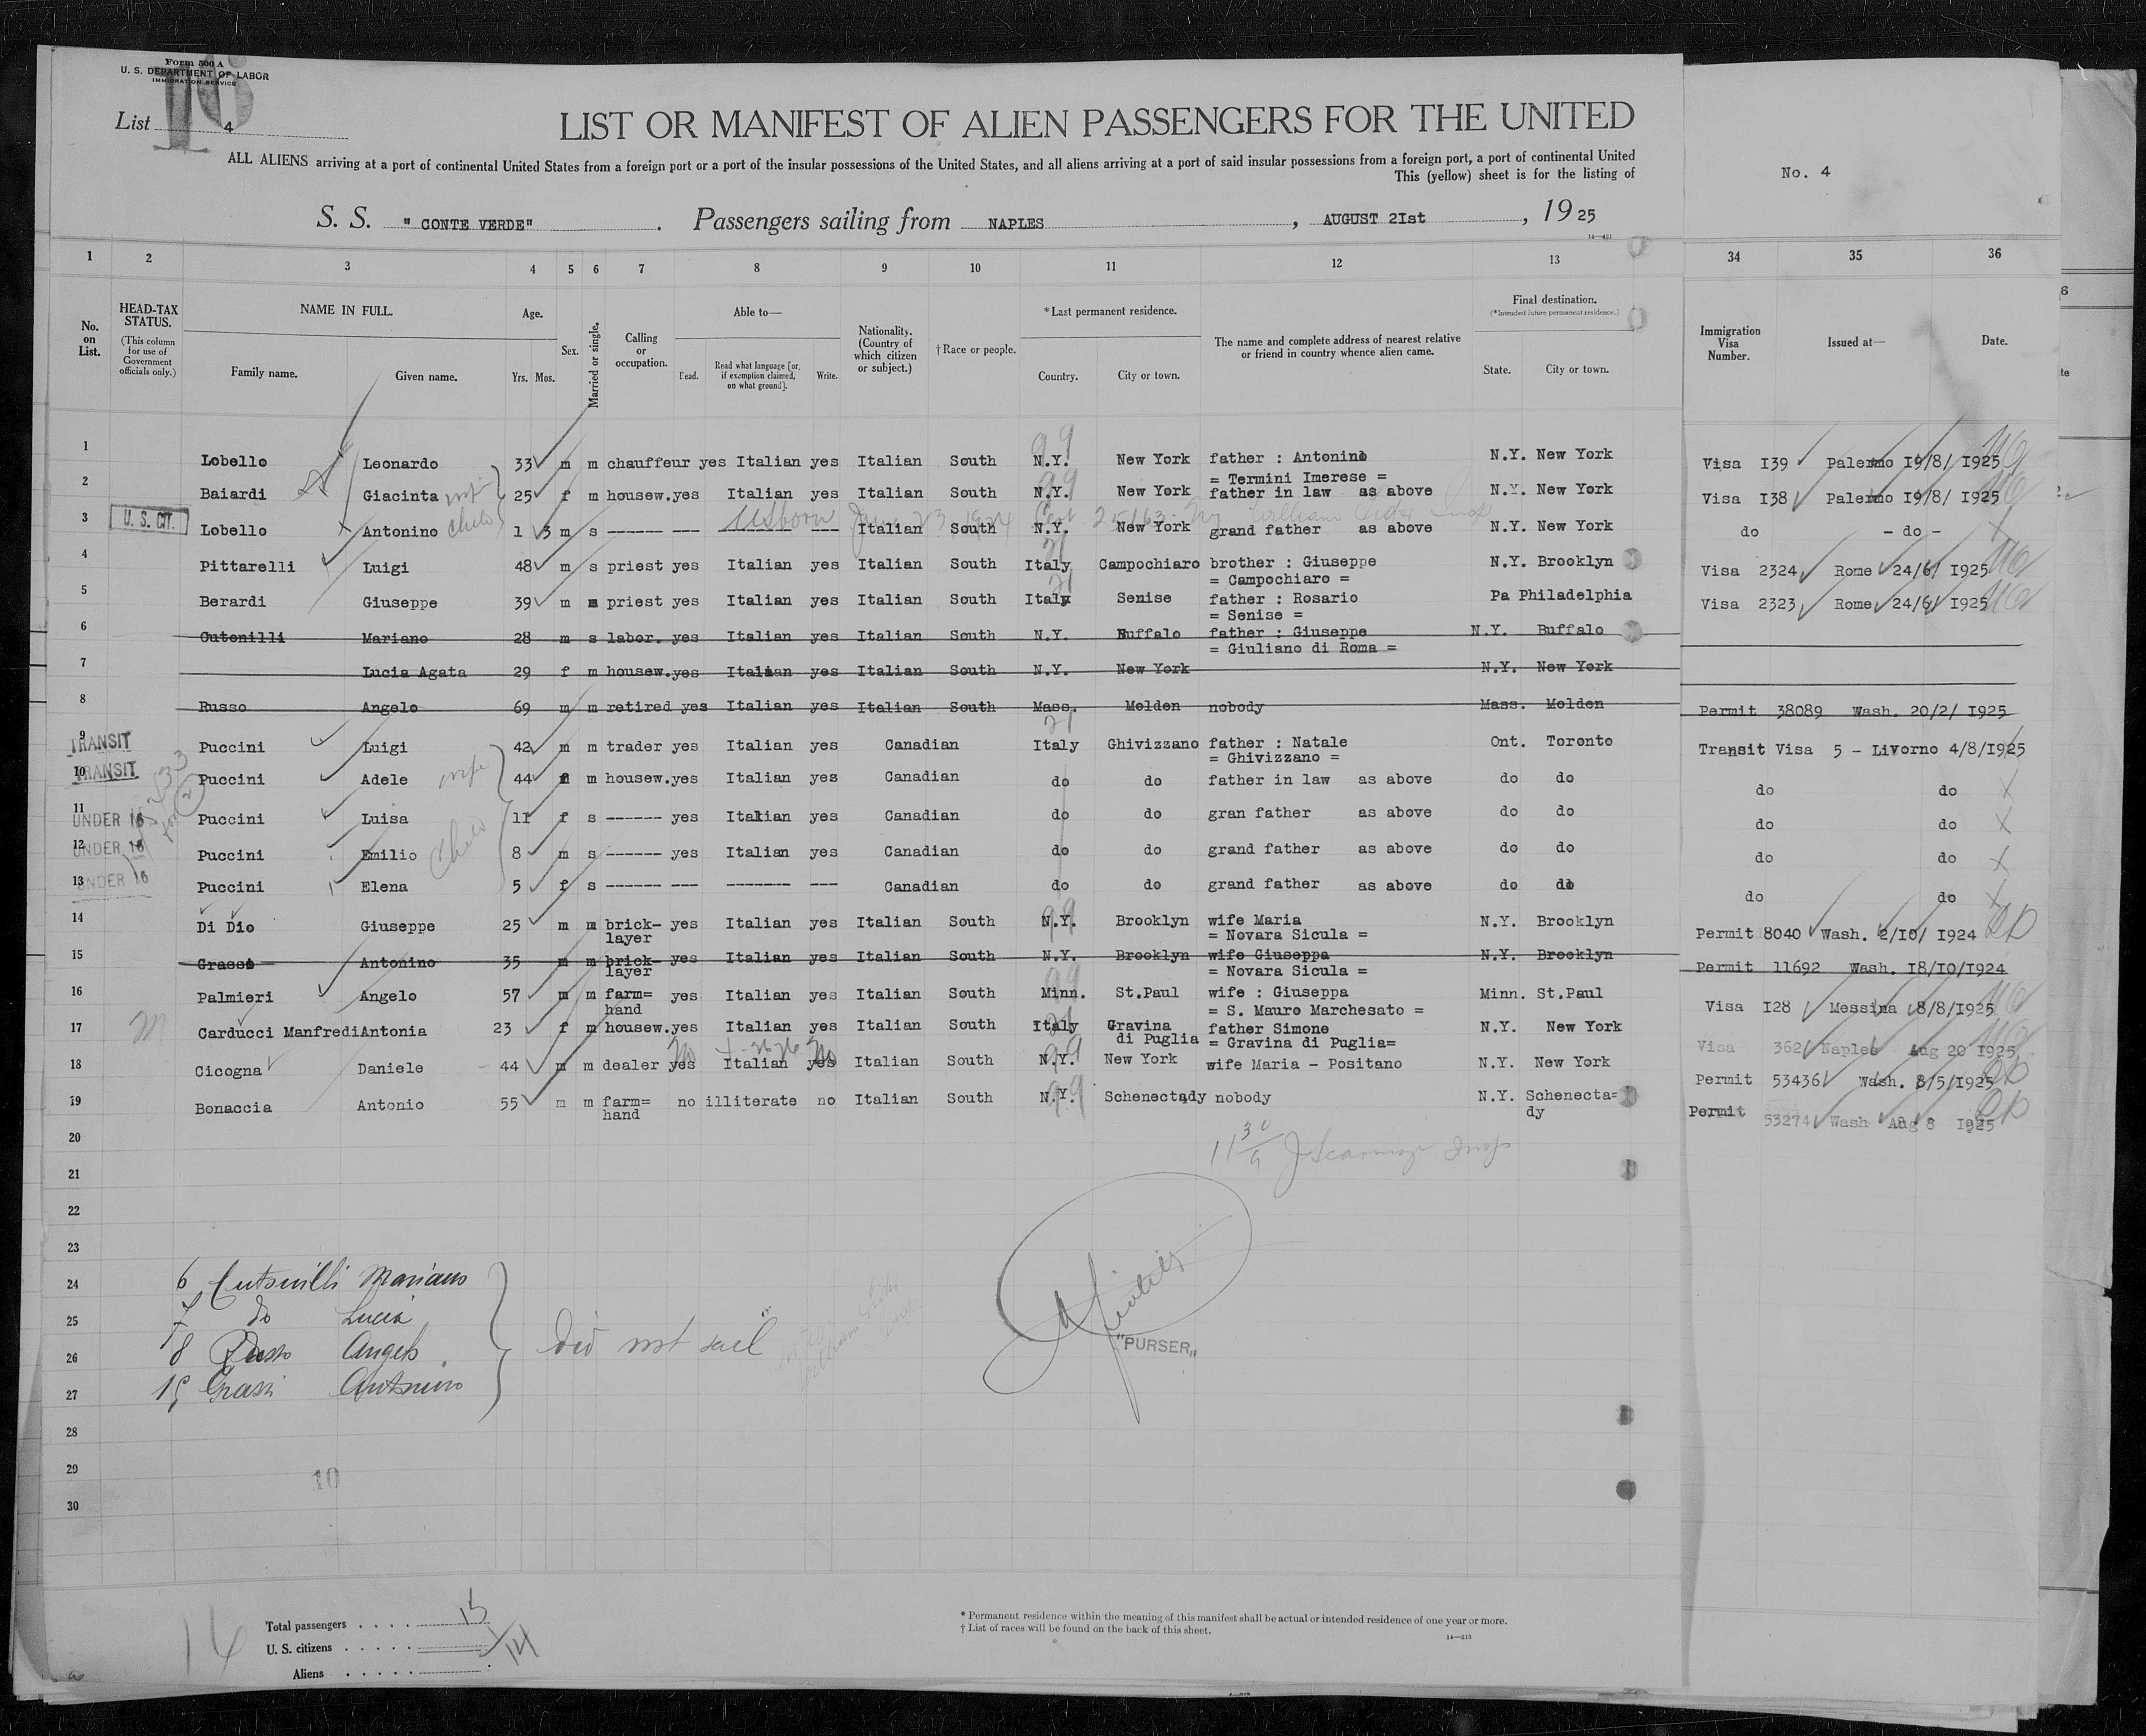 Form 500 A
U. S. DEPARTMENT OF LABOR
IMMIGRATION SERVICE
16
List 4
LIST OR MANIFEST OF ALIEN PASSENGERS FOR THE UNITED
ALL ALIENS arriving at a port of continental United States from a foreign port or a port of the insular possessions of the United States, and all aliens arriving at a port of said insular possessions from a foreign port, a port of continental United
This (yellow) sheet is for the listing of
No. 4
S. S. " CONTE VERDE" . Passengers sailing from NAPLES , AUGUST 2Ist , 19 25
14—431
1 2 3 4 5 6 7 8 9 10 11 12 13 34 35 36
No. on List.
HEAD-TAX STATUS.
(This column for use of Government officials only.)
NAME IN FULL.
Family name. Given name.
Age.
Yrs. Mos.
Sex.
Married or single.
Calling or occupation.
Able to—
Read. Read what language [or, if exemption claimed, on what ground]. Write.
Nationality. (Country of which citizen or subject.)
†Race or people.
*Last permanent residence.
Country. City or town.
The name and complete address of nearest relative or friend in country whence alien came.
Final destination.
(*Intended future permanent residence.)
State. City or town.
Immigration Visa Number.
Issued at—
Date.
1 Lobello Leonardo 33 m m chauffeur yes Italian yes Italian South N.Y. New York father : Antonino N.Y. New York Visa I39 Palermo I9/8/ I925
99
= Termini Imerese =
2 Baiardi Giacinta wife 25 f m housew. yes Italian yes Italian South N.Y. New York father in law as above N.Y. New York Visa I38 Palermo I9/8/ I925
99
3 U. S. CIT. Lobello Antonino child 1 3 m s ------ --- ------- --- Italian South N.Y. New York grand father as above N.Y. New York do - do -
US born June 23 1924 Cert 25163
4 Pittarelli Luigi 48 m s priest yes Italian yes Italian South Italy Campochiaro brother : Giuseppe N.Y. Brooklyn Visa 2324 Rome 24/6/ I925
21
= Campochiaro =
5 Berardi Giuseppe 39 m s priest yes Italian yes Italian South Italy Senise father : Rosario Pa Philadelphia Visa 2323 Rome 24/6/ I925
21
= Senise =
6 Cutonilli Mariano 28 m s labor. yes Italian yes Italian South N.Y. Buffalo father : Giuseppe N.Y. Buffalo
= Giuliano di Roma =
7 Lucia Agata 29 f m housew. yes Italian yes Italian South N.Y. New York N.Y. New York
8 Russo Angelo 69 m m retired yes Italian yes Italian South Mass. Molden nobody Mass. Molden Permit 38089 Wash. 20/2/ I925
9 TRANSIT Puccini Luigi 42 m m trader yes Italian yes Canadian Italy Ghivizzano father : Natale Ont. Toronto Transit Visa 5 - Livorno 4/8/I925
21
= Ghivizzano =
10 TRANSIT Puccini Adele wife 44 f m housew. yes Italian yes Canadian do do father in law as above do do do do
11 UNDER 16 Puccini Luisa 11 f s ------ yes Italian yes Canadian do do gran father as above do do do do
12 UNDER 16 Puccini Emilio child 8 m s ------ yes Italian yes Canadian do do grand father as above do do do do
13 UNDER 16 Puccini Elena 5 f s ------ --- ------- --- Canadian do do grand father as above do do do do
14 Di Dio Giuseppe 25 m m brick- yes Italian yes Italian South N.Y. Brooklyn wife Maria N.Y. Brooklyn Permit 8040 Wash. 2/IO/ I924
layer = Novara Sicula =
15 Grasso Antonino 35 m m brick- yes Italian yes Italian South N.Y. Brooklyn wife Giuseppa N.Y. Brooklyn Permit 11692 Wash. I8/IO/I924
layer = Novara Sicula =
16 Palmieri Angelo 57 m m farm= yes Italian yes Italian South Minn. St.Paul wife : Giuseppa Minn. St.Paul Visa I28 Messina 8/8/I925
99
hand = S. Mauro Marchesato =
17 Carducci Manfredi Antonia 23 f m housew. yes Italian yes Italian South Italy Gravina father Simone N.Y. New York Visa 362 Naples Aug 20 I925
di Puglia = Gravina di Puglia=
18 Cicogna Daniele 44 m m dealer yes Italian yes Italian South N.Y. New York wife Maria - Positano N.Y. New York Permit 53436 Wash. 8/5/I925
No No 99
19 Bonaccia Antonio 55 m m farm= no illiterate no Italian South N.Y. Schenectady nobody N.Y. Schenecta= Permit 53274 Wash Aug 8 I925
hand 99 dy
20
21
22
23
24 6 Cutonilli Mariano
25 7 do Lucia
26 8 Russo Angelo
27 15 Grassi Antonino
Did not sail
"PURSER„
28
29
10
30
14
Total passengers . . . . 15
U. S. citizens . . . . . 1
Aliens . . . . . 14
* Permanent residence within the meaning of this manifest shall be actual or intended residence of one year or more.
† List of races will be found on the back of this sheet.
14—213